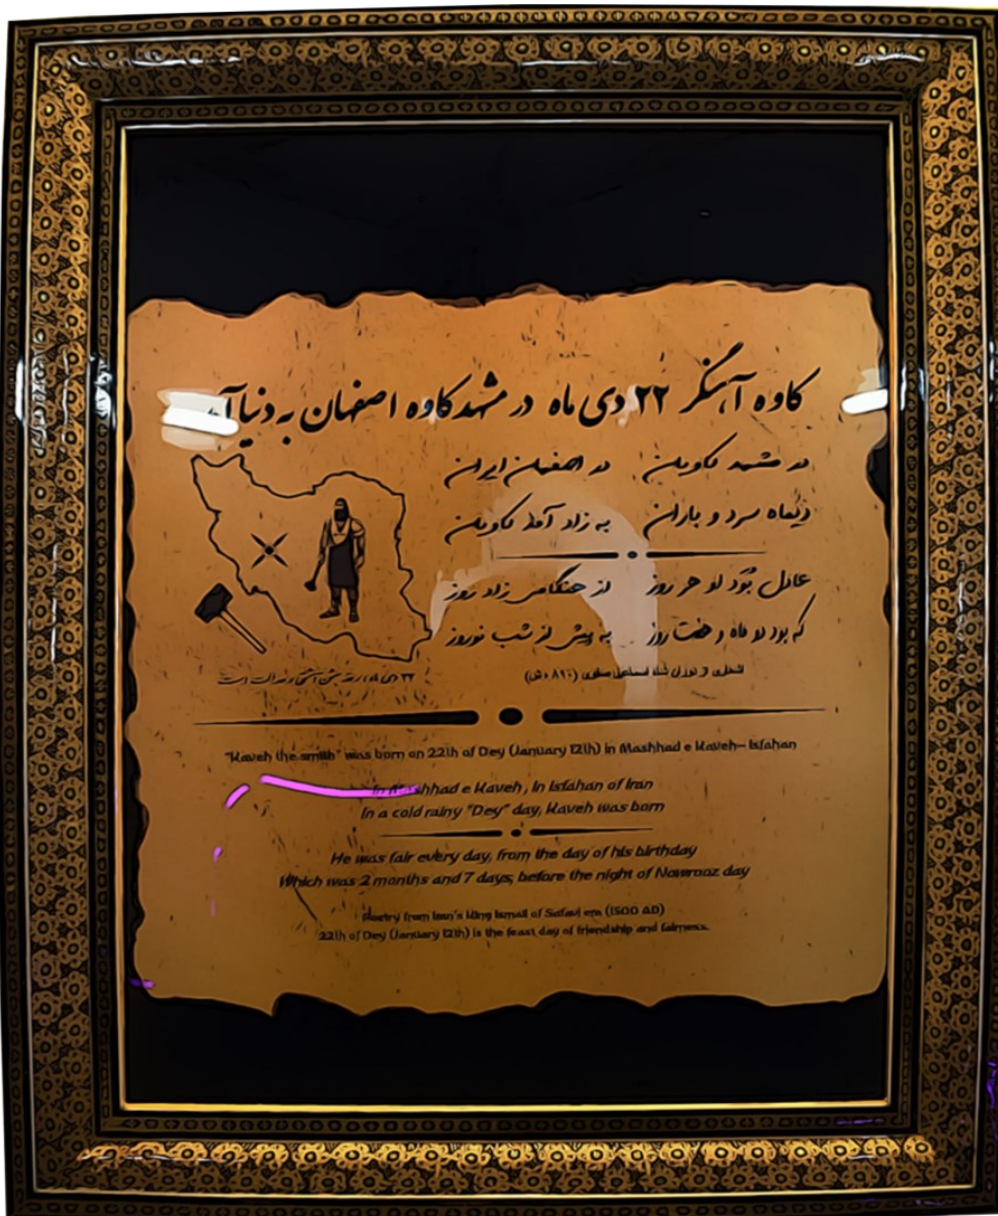 کاوه آهنگر ۲۲ دی ماه در مشهد کاوه اصفهان به دنیا
در مشهد کاویان در اصفهان ایران
دیماه سرد و باران به زاد آمد کاویان
عادل بُوَد او هر روز از هنگامه‌ی زاد روز
که بود دو ماه و هفت روز به پیش از شب نوروز
"Kaveh the smith" was born on 22th of Dey (January 12th) in Mashhad e Kaveh– Isfahan
In Mashhad e Kaveh, In Isfahan of Iran
In a cold rainy "Dey" day, Kaveh was born
He was fair every day, from the day of his birthday
Which was 2 months and 7 days, before the night of Nowrooz day
Poetry from Iran's king Ismail of Safavi era (1500 AD)
22th of Dey (January 12th) is the feast day of friendship and fairness.